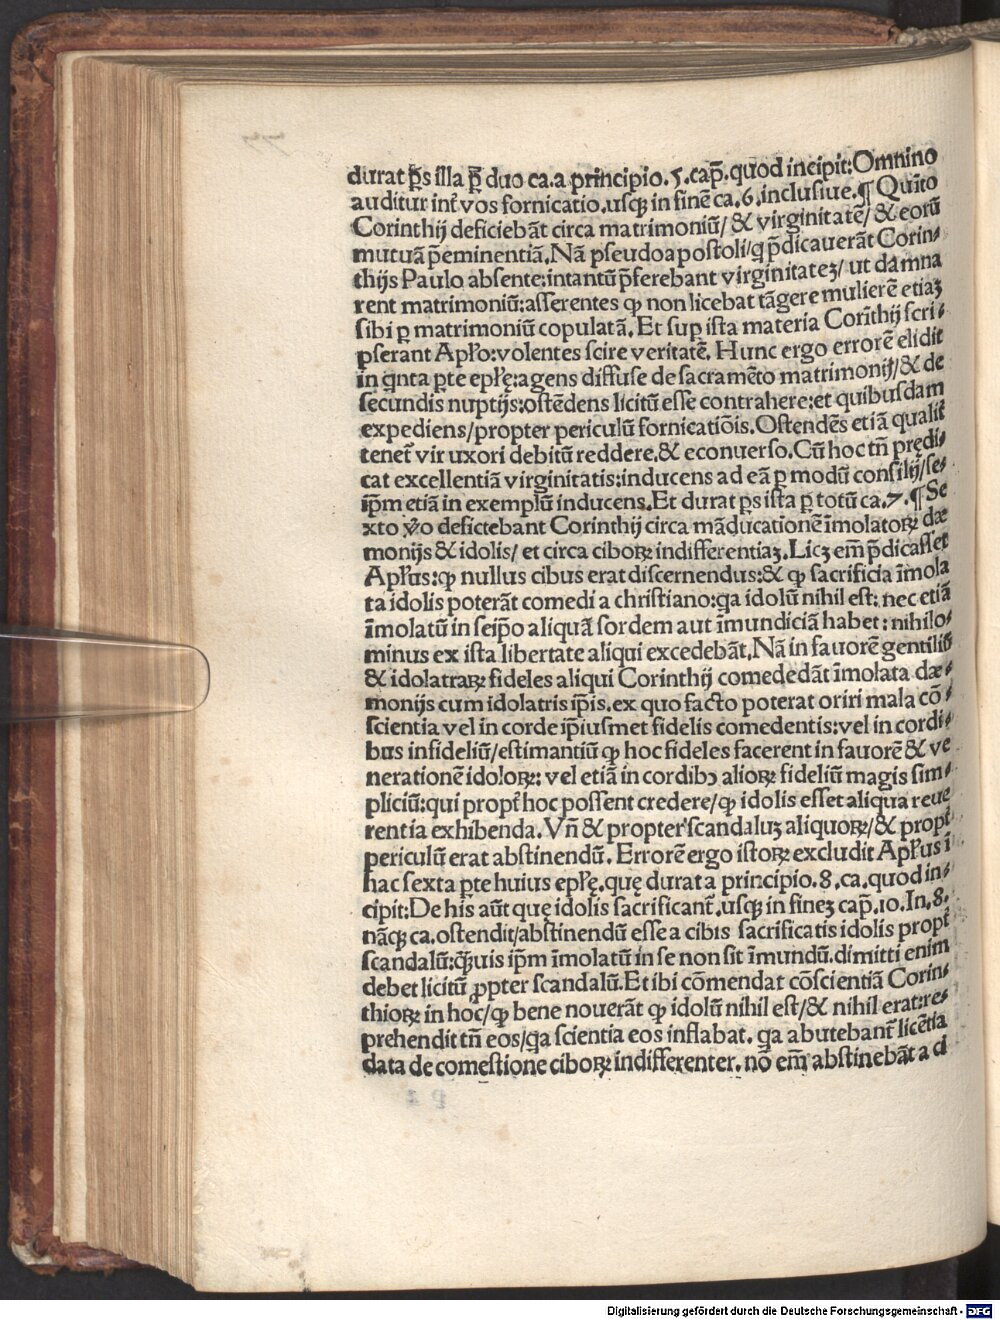 durat p̄s illa p̱ duo ca.a principio.5.cap̄.quod incipit:Omnino
auditur int̄ vos fornicatio.usq̨ in finē ca.6.inclusiue.¶ Quīto
Corinthij deficiebāt circa matrimoniū/ & virginitatē/ & eorū
mutuā p̄eminentiā.Nā pseudoapostoli/q p̄dicauerāt Corin⸗
thijs Paulo absente:intantū p̄ferebant virginitateꝫ/ ut damna
rent matrimoniū:asserentes ꝙ non licebat tāgere mulierē etiaꝫ
sibi ꝑ matrimoniū copulatā. Et suꝑ ista materia Corīthij scri⸗
pserant Apl̄o:volentes scire veritatē. Hunc ergo errorē elidit
in qnta ꝑte epl̄ę:agens diffuse de sacramēto matrimonij/& de
secundis nuptijs:ostēdens licitū esse contrahere:et quibusdam
expediens/propter periculū fornicatiōis.Ostendēs etiā qualit̄
tenet̄ vir uxori debitū reddere.& econuerso.Cū hoc tn̄ prędi⸗
cat excellentiā virginitatis:inducens ad eā ꝑ modū consilij/se⸗
ip̄m etiā in exemplū inducens.Et durat ꝑs ista ꝑ totū ca.7.¶ Se
xto v̊o defictebant Corinthij circa māducationē īmolatoꝝ dæ
monijs & idolis/ et circa ciboꝝ indifferentiaꝫ.Licꝫ em̄ p̄dicasset
Apl̄us:ꝙ nullus cibus erat discernendus:& ꝙ sacrificia īmola
ta idolis poterāt comedi a christiano:qa idolū nihil est: nec etiā
īmolatū in seip̄o aliquā sordem aut īmundiciā habet: nihilo⸗
minus ex ista libertate aliqui excedebāt.Nā in fauorē gentiliū
& idolatraꝝ fideles aliqui Corinthij comededāt īmolata dæ⸗
monijs cum idolatris ip̄is.ex quo facto poterat oriri mala cō⸗
scientia vel in corde ip̄iusmet fidelis comedentis:vel in cordi⸗
bus infideliū/estimantiū ꝙ hoc fideles facerent in fauorē & ve
nerationē idoloꝝ: vel etiā in cordibꝰ alioꝝ fideliū magis sim⸗
pliciū:qui propt̄ hoc possent credere/ꝙ idolis esset aliqua reue
rentia exhibenda. Vn̄ & propter scandaluꝫ aliquoꝝ/& propt̄
periculū erat abstinendū. Errorē ergo istoꝝ excludit Apl̄us ī
hac sexta ꝑte huius epl̄ę.quę durat a principio.8.ca.quod in⸗
cipit:De his aūt quę idolis sacrificant̄.usq̨ in fineꝫ cap̄.10.In.8.
nāq̨ ca.ostendit/abstinendū esse a cibis sacrificatis idolis propt̄
scandalū:q̨̄uis ip̄m īmolatū in se non sit īmundū.dimitti enim
debet licitū ꝓpter scandalū.Et ibi cōmendat cōscientiā Corin⸗
thioꝝ in hoc/ꝙ bene nouerāt ꝙ idolū nihil est/& nihil erat:re⸗
prehendit tn̄ eos/qa scientia eos inflabat. qa abutebant̄ licētia
data de comestione ciboꝝ indifferenter. nō em̄ abstinebāt a ci
Digitalisierung gefördert durch die Deutsche Forschungsgemeinschaft - DFG